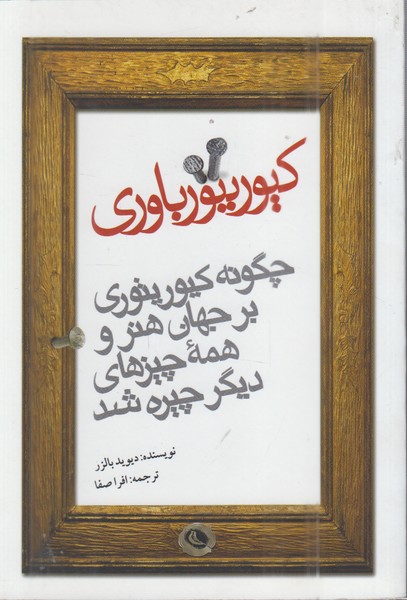 کیوریتورباوری
چگونه کیوریتوری
بر جهان هنر و
همهٔ چیزهای
دیگر چیره شد
نویسنده: دیوید بالزر
ترجمه: افرا صفا